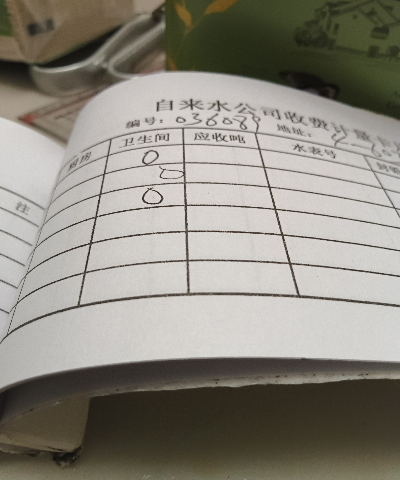 自来水公司收费计量卡
编号: 036089 地址:
厨房 卫生间 应收吨 水表号
注
0
0
0